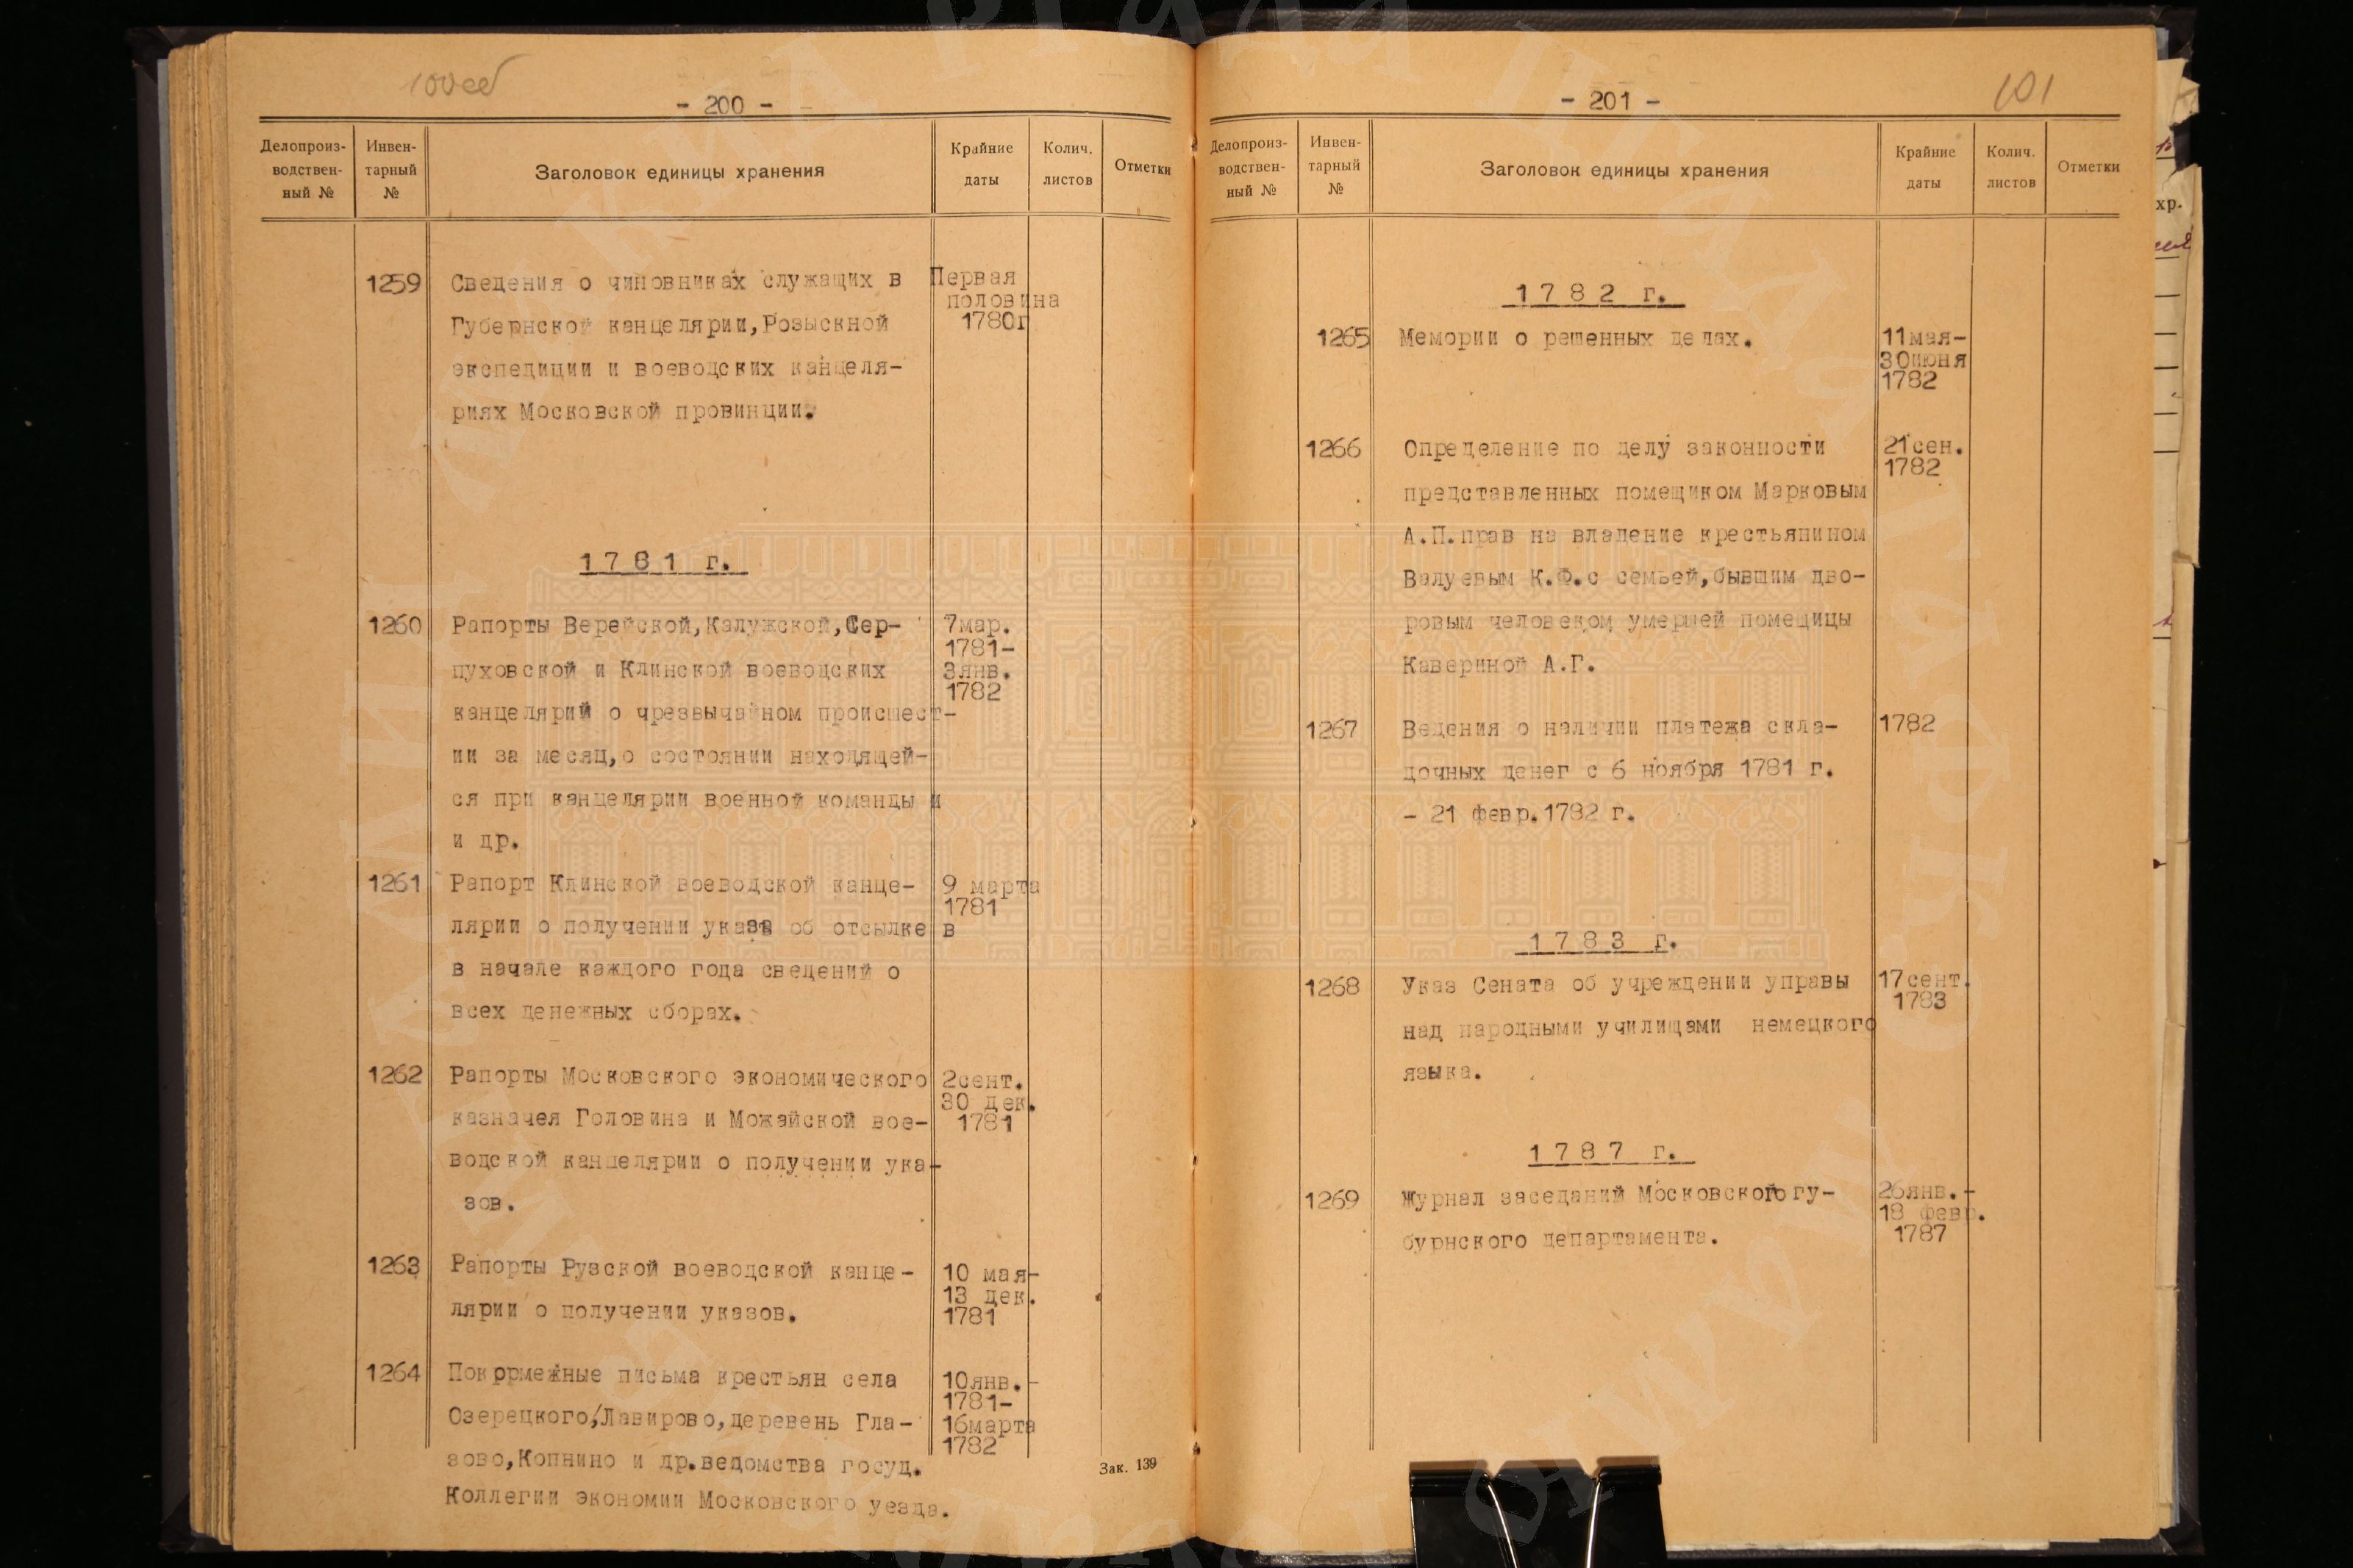 100об
- 200 -
Делопроиз-
водствен-
ный №
Инвен-
тарный
№
Заголовок единицы хранения
Крайние
даты
Колич.
листов
Отметки
1259 Сведения о чиновниках служащих в Первая
половина
Губернской канцелярии,Розыскной 1780г
экспедиции и воеводских канцеля-
риях Московской провинции.
1781 г.
1260 Рапорты Верейской,Калужской,Сер- 7мар.
1781-
пуховской и Клинской воеводских 3янв.
1782
канцелярий о чрезвычайном происшест-
ии за месяц,о состоянии находящей-
ся при канцелярии военной команды и
и др.
1261 Рапорт Клинской воеводской канце- 9 марта
1781
лярии о получении указа об отсылке в
в начале каждого года сведений о
всех денежных сборах.
1262 Рапорты Московского экономического 2сент.
30 дек.
казначея Головина и Можайской вое- 1781
водской канцелярии о получении ука-
зов.
1263 Рапорты Рузской воеводской канце- 10 мая-
13 дек.
лярии о получении указов. 1781
1264 Покормежные письма крестьян села 10янв.-
1781-
Озерецкого,/Лавирово,деревень Гла- 16марта
1782
зово,Копнино и др.ведомства госуд.
Коллегии экономии Московского уезда.
Зак. 139
101
- 201 -
Делопроиз-
водствен-
ный №
Инвен-
тарный
№
Заголовок единицы хранения
Крайние
даты
Колич.
листов
Отметки
1782 г.
1265 Мемории о решенных делах. 11мая-
30июня
1782
1266 Определение по делу законности 21сен.
1782
представленных помещиком Марковым
А.П.прав на владение крестьянином
Валуевым К.Ф.с семьей,бывшим дво-
ровым человеком умершей помещицы
Кавериной А.Г.
1267 Ведения о наличии платежа скла- 1782
дочных денег с 6 ноября 1781 г.
- 21 февр.1782 г.
1783 г.
1268 Указ Сената об учреждении управы 17сент.
1783
над народными училищами немецкого
языка.
1787 г.
1269 Журнал заседаний Московского гу- 26янв.-
18 февр.
бурнского департамента. 1787
хр.